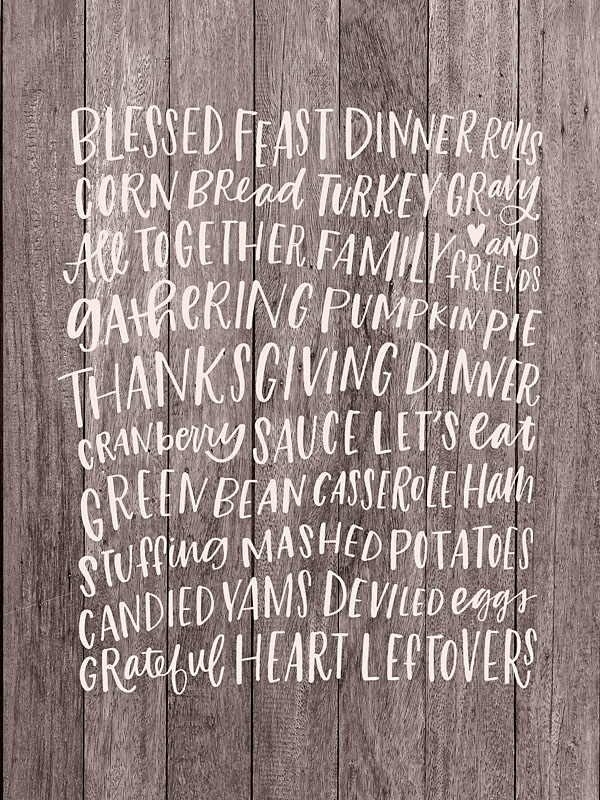 BLESSED FEAST DINNER ROLLS
CORN BRead TURKEY GRavy
All TOGETHER FAMILY AND FRIENDS
gAtheRING PUMPKIN PIE
THANKSGIVING DINNER
CRANberry SAUCE LET'S eat
GREEN BEAN CASSEROLE Ham
STUffing MASHED POTATOES
CANDIED YAMS DEVILED eggs
GRateful HEART LEFTOVERS